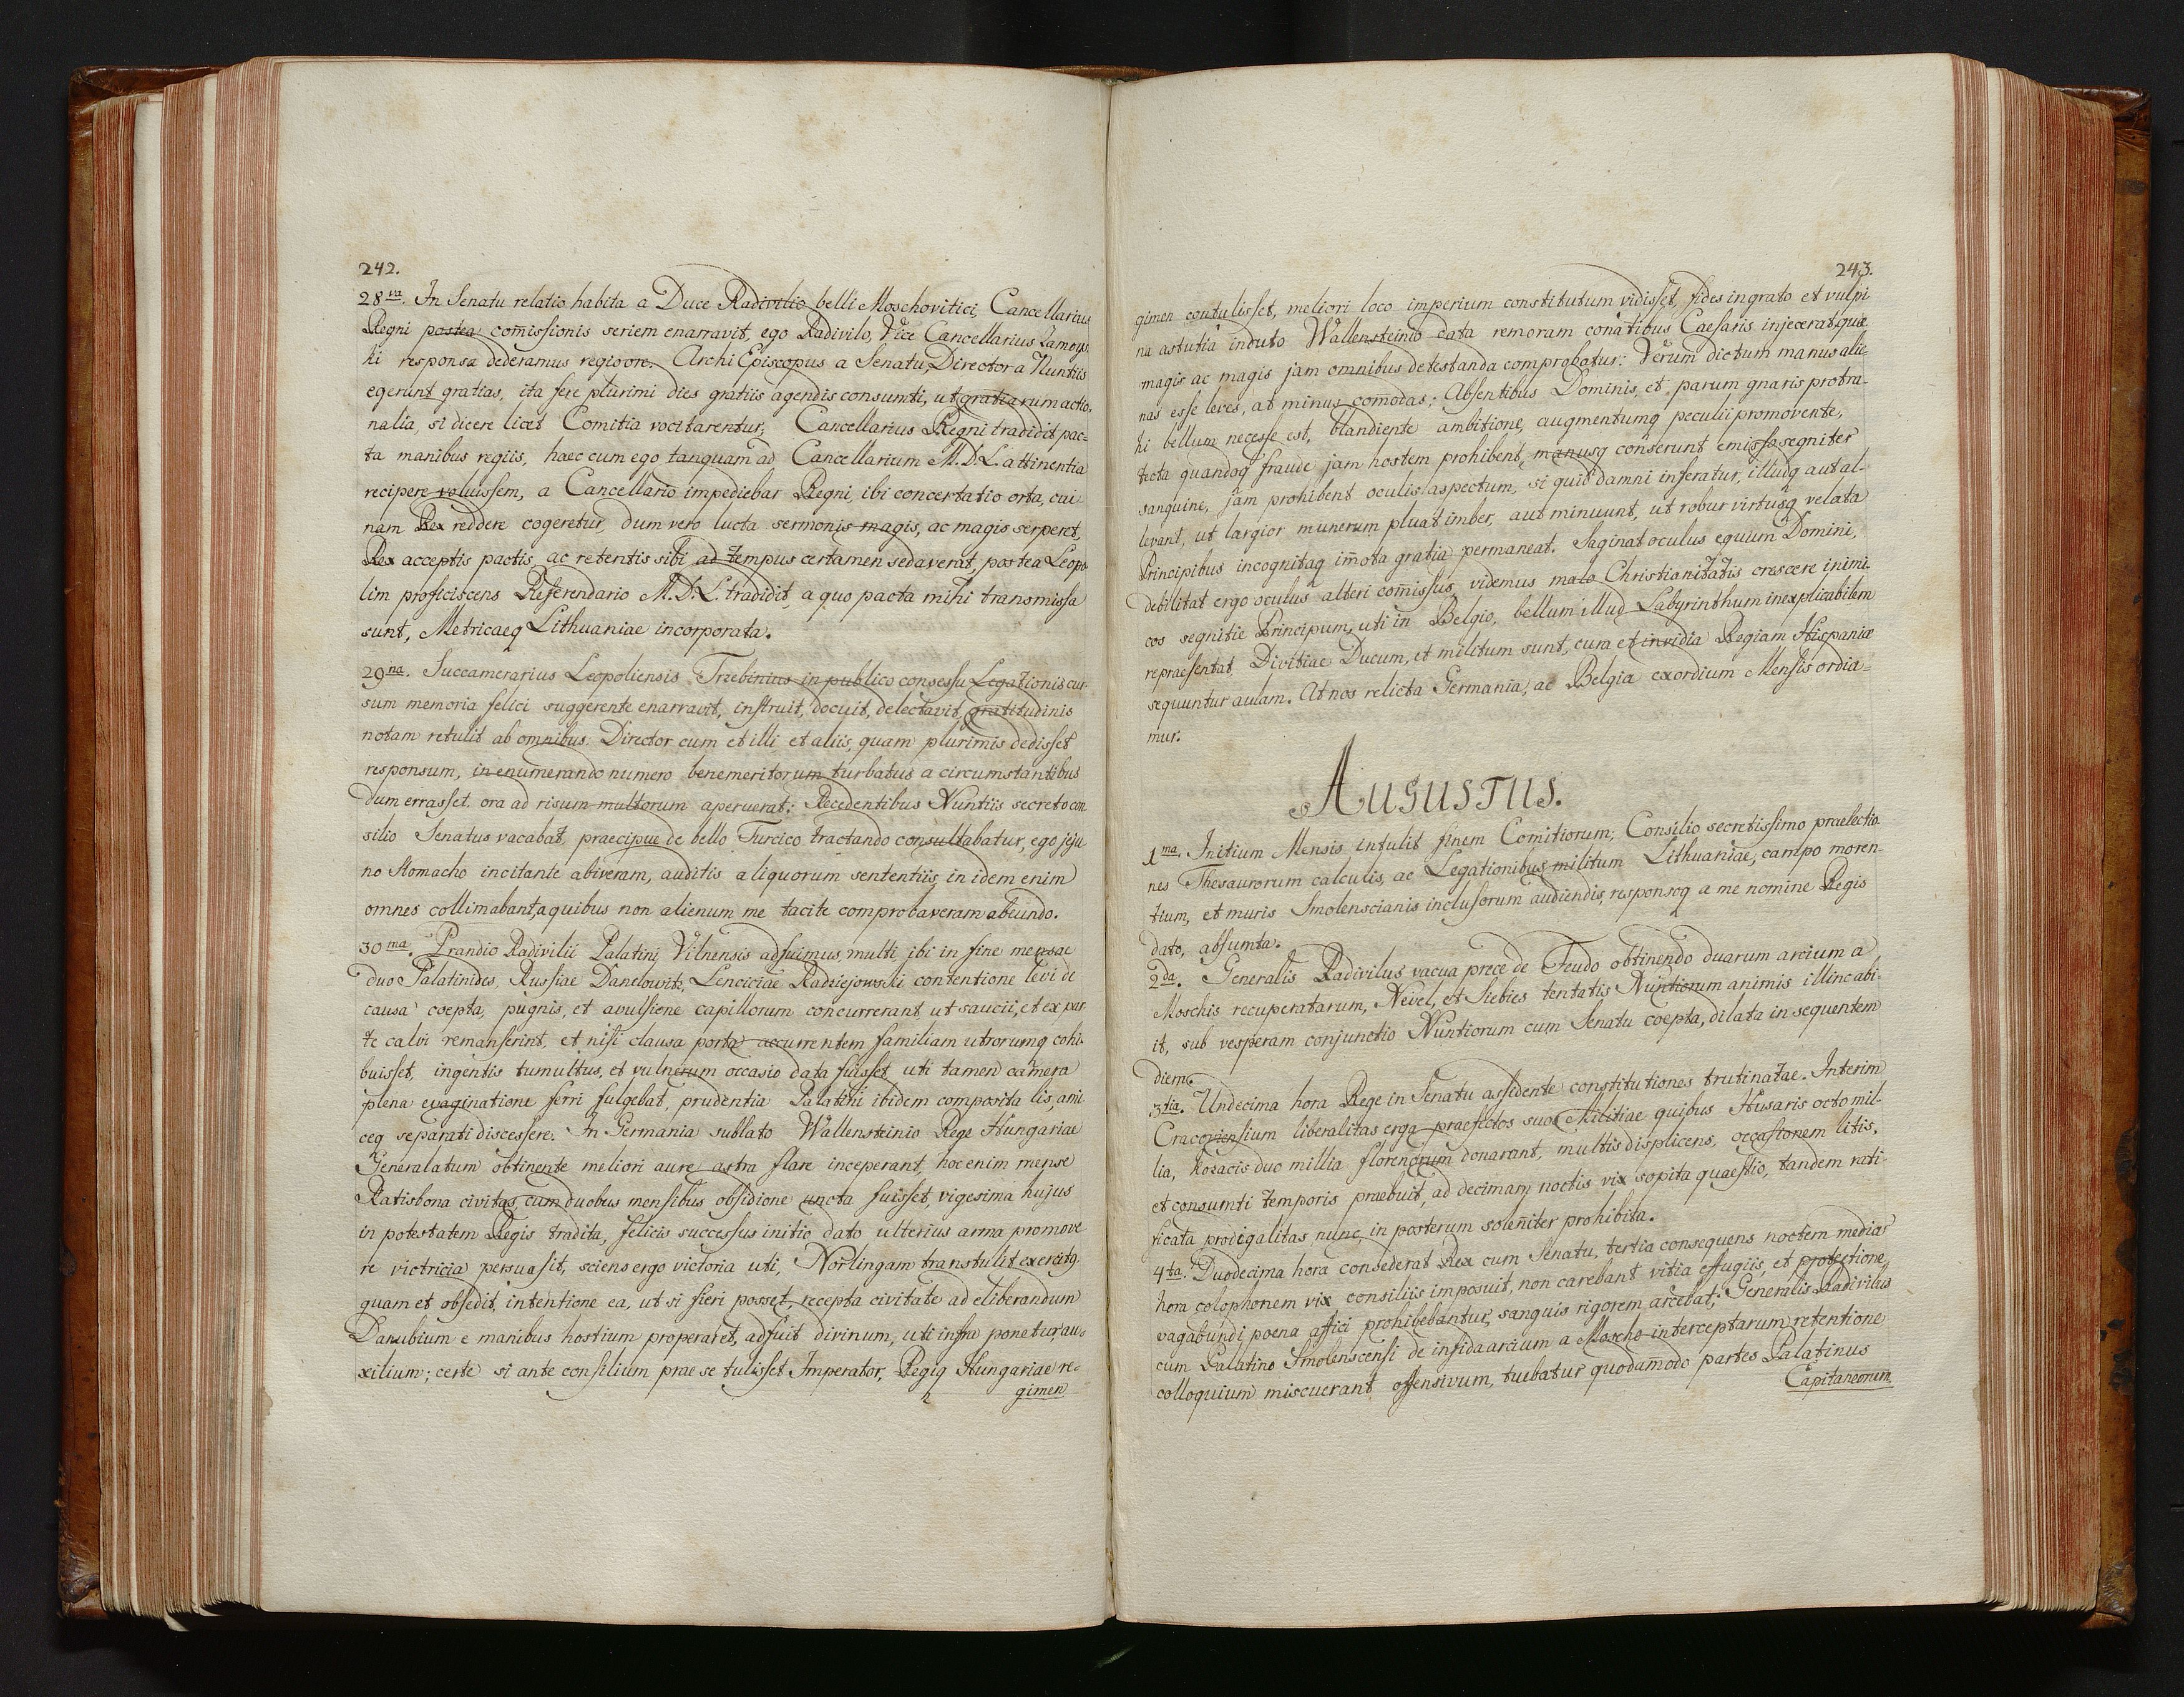 242.
28va. In Senatu relatio habita a Duce Radivilio belli Moschovitici, Cancellarius
Regni postea com̄issionis seriem enarravit, ego Radivilo, Vice Cancellarius Zamoys-
ki responsa dederamus regio ore. Archi Episcopus a Senatu, Director a Nuntiis
egerunt gratias, ita fere plurimi dies gratiis agendis consumti, ut gratiarum actio-
nalia, si dicere licet Comitia vocitarentur, Cancellarius Regni tradidit pac-
ta manibus regiis, haec cum ego tanquam ad Cancellarium M.D.L. attinentia
recipere voluissem, a Cancellario impediebar Regni, ibi concertatio orta, cui-
nam Rex reddere cogeretur, dum vero lucta sermonis magis, ac magis serperet,
Rex acceptis pactis, ac retentis sibi ad tempus certamen sedaverat, postea Leopo
lim proficiscens Referendario M.D.L. tradidit, a quo pacta mihi transmissa
sunt, Metricaeq Lithuaniae incorporata.
29na. Succamerarius Leopoliensis Trzebinius in publico consessu Legationis cur-
sum memoria felici suggerente enarravit, instruit, docuit, delectavit, gratitudinis
notam retulit ab omnibus. Director cum et illi et aliis, quam plurimis dedisset
responsum, in enumerando numero benemeritorum turbatus a circumstantibus
dum errasset ora ad risum multorum aperuerat; Recedentibus Nuntiis secreto con
silio Senatus vacabat, praecipue de bello Turcico tractando consultabatur, ego jeju
no stomacho incitante abiveram, auditis aliquorum sententiis, in idem enim
omnes collimabant, a quibus non alienum me tacite comprobaveram abeundo.
30ma. Prandio Radivilii Palatini Vilnensis adfuimus multi, ibi in fine mensae
duo Palatinides, Russiae Danelowitz, Lenciciae Radziejowski contentione levi de
causa coepta, pugnis, et avulsione capillorum concurrerant ut saucii, et ex par
te calvi remanserint, et nisi clausa porta accurrentem familiam utrorumq cohi-
buisset, ingentis tumultus, et vulnerum occasio data fuisset, uti tamen camera
plena evaginatione ferri fulgebat, prudentia Palatini ibidem composita lis, ami
ceq separati discessere. In Germania sublato Wallensteinio Rege Hungariae
Generalatum obtinente meliori aure astra flare inceperant, hoc enim mense
Ratisbona civitas, cum duobus mensibus obsidione cincta fuisset, vigesima hujus
in potestatem Regis tradita, felicis successus initio dato ulterius arma promove
re victricia persuasit, sciens ergo victoria uti, Norlingam transtulit exercitq
quam et obsedit, intentione ea, ut si fieri posset, recepta civitate ad eliberandum
Danubium e manibus hostium properaret, adfuit divinum, uti infra ponetur au-
xilium; certe si ante consilium prae se tulisset Imperator, Regiq Hungariae re-
gimen
243.
gimen contulisset, meliori loco imperium constitutum vidisset, fides ingrato et vulpi
na astutia induto Wallensteinio data remoram conatibus Caesaris injecerat, quae
magis ac magis jam omnibus detestanda comprobatur. Verum dictum manus alie-
nas esse leves, at minus com̄odas; Absentibus Dominis, et parum gnaris protra-
hi bellum necesse est, blandiente ambitione, augmentumq peculii promovente,
tecta quandoq fraude jam hostem prohibent, manusq conserunt emisso segniter
sanguine, jam prohibent oculis aspectum, si quid damni inferatur, illudq aut al-
levant, ut largior munerum pluat imber, aut minuunt, ut robur virtusq velata
Principibus incognitaq im̄ota gratia permaneat. Saginat oculus equum Domini,
debilitat ergo oculus alteri com̄issus, videmus malo Christianitatis crescere inimi-
cos segnitie Principum, uti in Belgio, bellum illud Labyrinthum inexplicabilem
repraesentat Divitiae Ducum, et militum sunt, cura et invidia Regiam Hispaniae
sequuntur aulam. At nos relicta Germania, ac Belgia exordium Mensis ordia-
mur.
AUGUSTUS.
1ma. Initium Mensis intulit finem Comitiorum; Consilio secretissimo praelectio-
nes Thesaurorum calculis, ac Legationibus militum Lithuaniae, campo moren-
tium, et muris Smolenscianis inclusorum audiendis, responsoq a me nomine Regis
dato, absumta.
2da. Generalis Radivilus vacua prece de Feudo obtinendo duarum arcium a
Moschis recuperatarum, Nevel, et Siebies tentatis Nuntiorum animis illinc abi-
it, sub vesperam conjunctio Nuntiorum cum Senatu coepta, dilata in sequentem
diem.
3tia. Undecima hora Rege in Senatu assidente constitutiones trutinatae. Interim
Cracoviensium liberalitas erga praefectos suos Militiae quibus Husaris octo mil-
lia, Kozacis duo millia florenorum donarant, multis displicens, occasionem litis,
et consumti temporis praebuit, ad decimam noctis vix sopita quaestio, tandem rati-
ficata prodigalitas nunc, in posterum solen̄iter prohibita.
4ta. Duodecima hora consederat Rex cum Senatu, tertia consequens noctem mediam
hora colophonem vix consiliis imposuit, non carebant vitia effugiis, et protectione,
vagabundi poena affici prohibebantur, sanguis rigorem arcebat; Generalis Radivilius
cum Palatino Smolenscensi de insida arcium a Moscho interceptarum retentione
colloquium miscuerant offensivum, tuebatur quodam̄odo partes Palatinus
Capitaneorum